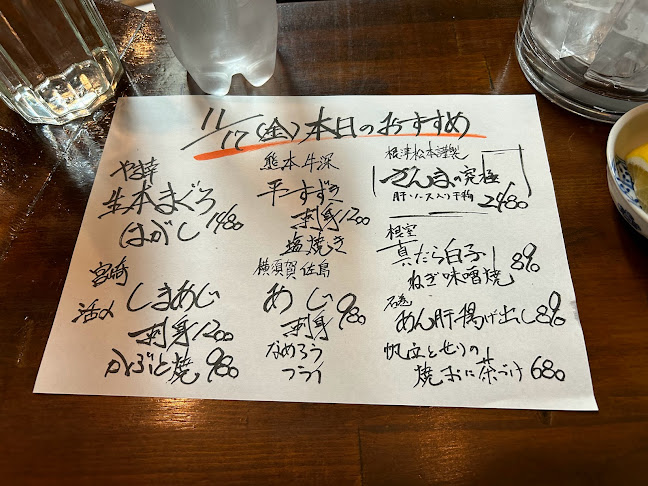 11/17(金)本日のおすすめ
やま幸
生本まぐろ
はがし 1480
宮崎
活〆 しまあじ
刺身 1200
かぶと焼 980
熊本牛深
平すずき
刺身 1200
塩焼き
横須賀佐島
あじ
刺身 980
なめろう
フライ
根津松本謹製
さんまの究極
肝ソース入り干物 2480
根室
真だら白子
ねぎ味噌焼 890
あん肝揚げ出し 890
帆立とせりの
焼おに茶づけ 680